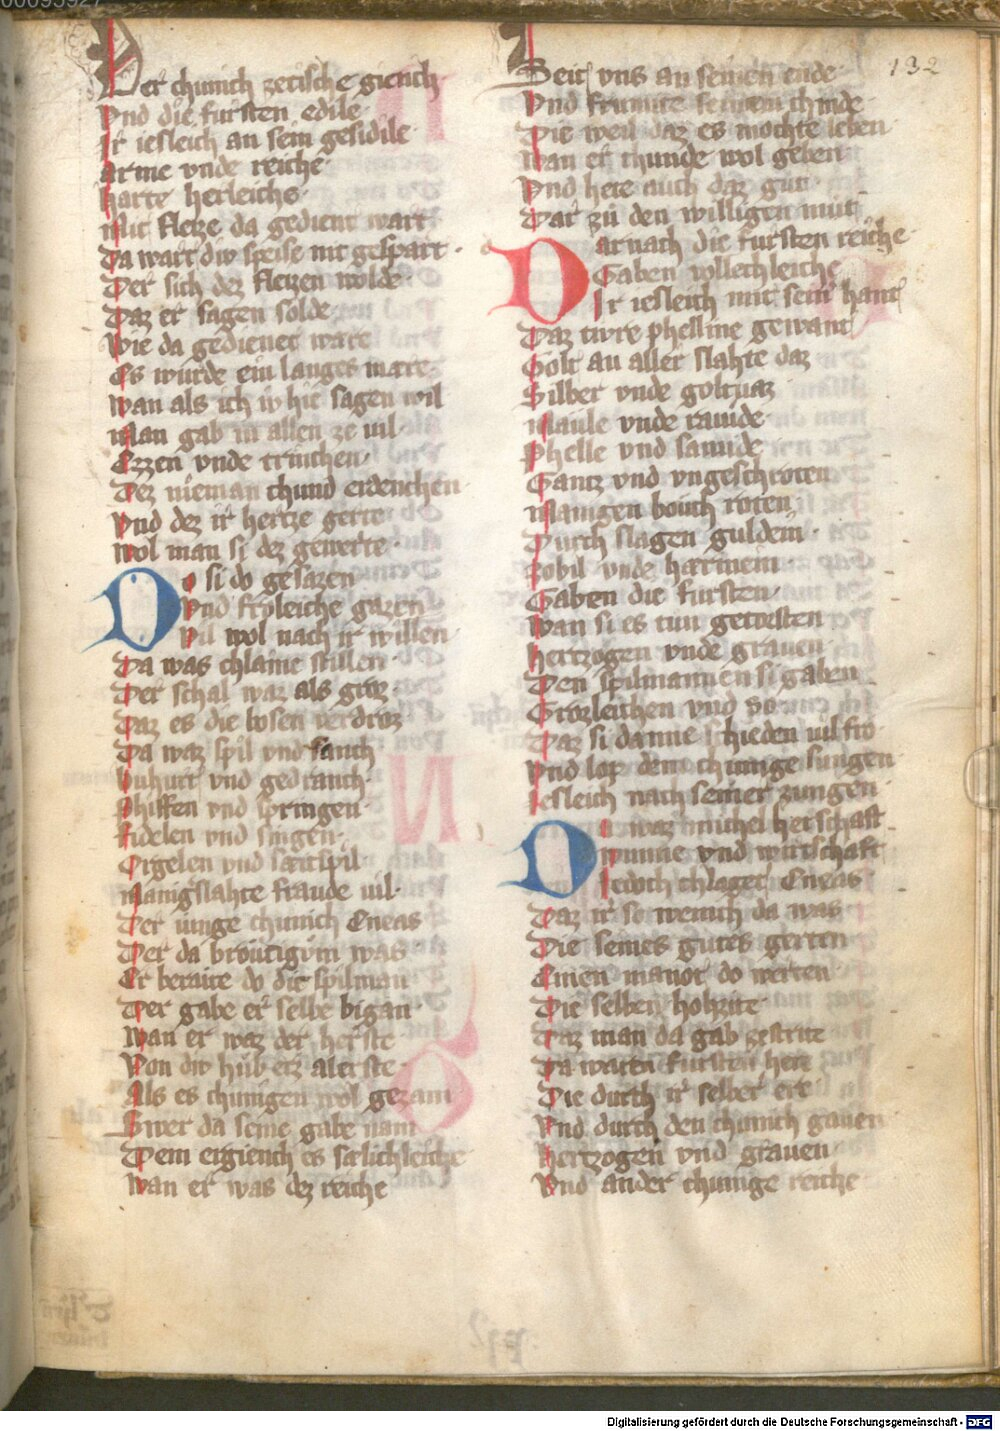 132
Der chunich zetische giench
Vnd die fursten edile
Ir iesleich an sein gesidile
arme vnde reiche
harte herleiche
Mit fleize da gedient wart
Da wart div speise nit gespart
Der sich dez fleizen wolde
Daz er sagen solde
Wie da gedienet ware
Es wurde ein langes mare
Wan als ich iv hie sagen wil
Man gab in allen ze uil
Ezzen vnde trinchen
Dez nieman chund erdenchen
Vnd dez ir hertze gerte
Wol man si dez gewerte
Do si do gesazen
Vnd froleiche gazen
Vil wol nach ir willen
Da was chlaine stillen
Der schal waz als groz
Daz es die bosen verdroz
Da waz spil vnd sanch
Buhurt vnd gedranch
Phiffen vnd springen
Fidelen vnd singen
Orgelen vnd saitspil
Manigslahte fraude uil
Der iunge chunich Eneas
Der da broutigvm was
Er beraite do die spilman
Der gabe er selbe bigan
Wan er waz der herste
Von div hub erz alerste
Als es chunigen wol gezam
Swer da seine gabe nam
Dem ergiench es sælichleiche
Wan er was dez reiche
Seit vns an seinen ende
Vnd frumte seinem chinde
Die weil daz es mochte leben
Wan er chunde wol geben
Vnd hete auch daz gut
Dar zu den willigen mut
Darnach die fursten reiche
Gaben vollechleiche
Ir iesleich mit seiner hant
Daz tivre phelline gewant
Golt an aller slahte daz
Silber vnde goltvaz
Maule vnde rauide
Phelle vnd samide
Gantz vnd vngeschroten
Manigen bouch roten
Durch slagen guldein
Zobil vnde harmein
Gaben die fursten
Wan si es tun getorsten
Hertzogen vnde grauen
Den spilmannen si gaben
Grozleichen vnd so
Daz si danne schieden uil fro
Vnd lop dem chunige sungen
Iesleich nach seiner zungen
Da waz michel herschaft
wunne vnd wirtschaft
Iedoch chlaget Eneas
Daz ir so wenich da was
Die seines gutes gerten
Einen manot do werten
Die selben hohzite
Daz man da gab zestrite
Da waren fursten here
Die durch ir selber ere
Vnd durch den chunich gauen
Hertzogen vnd grauen
Vnd ander chunige reiche
Digitalisierung gefördert durch die Deutsche Forschungsgemeinschaft - DFG